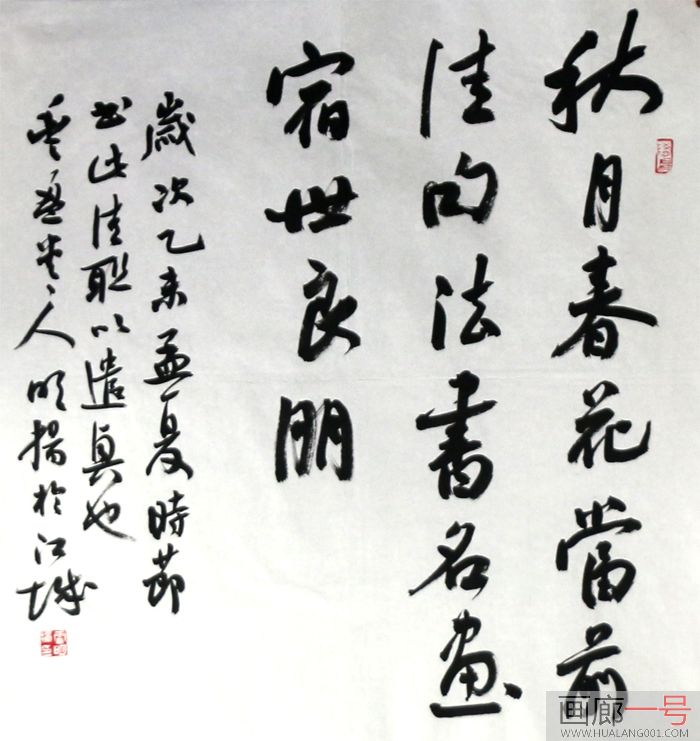 秋月春花當前
佳句法書名畫
宿世良朋
歲次乙未孟夏時節
書此佳聯以遣興也
人明揚於江城
画廊一号
WWW.HUALANG001.COM